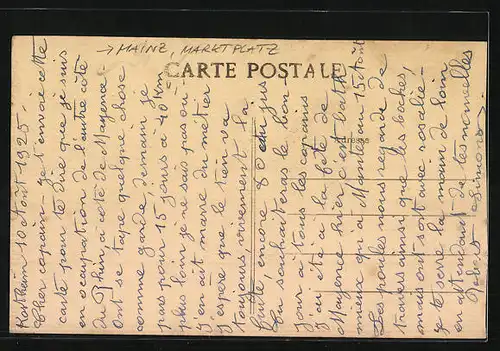 → MAINZ, MARKTPLATZ
CARTE POSTALE
10 août 1925.
Cher copain, je t'envoie cette
carte pour te dire que je suis
en occupation de l'autre côté
du Rhin, à côté de Mayence.
Ont se tape quelque chose
comme garde demain je
pars pour 15 jours à 40 Km
plus loin je ne sais pas ou.
J'en ait marre du métier
j'espère que le tien va
toujours, vivement la
fuite encore 80 du jus
Tu souhaiteras le bon-
jour à tous les copains
J'ai été à la fête de
Mayence hier c'est bath
mieux qu'à 15 août
Les poules nous regarde de
travers ainsi que les boches,
mais ont sort avec
je te serre la main de loin
en attendant de tes nouvelles
Robert